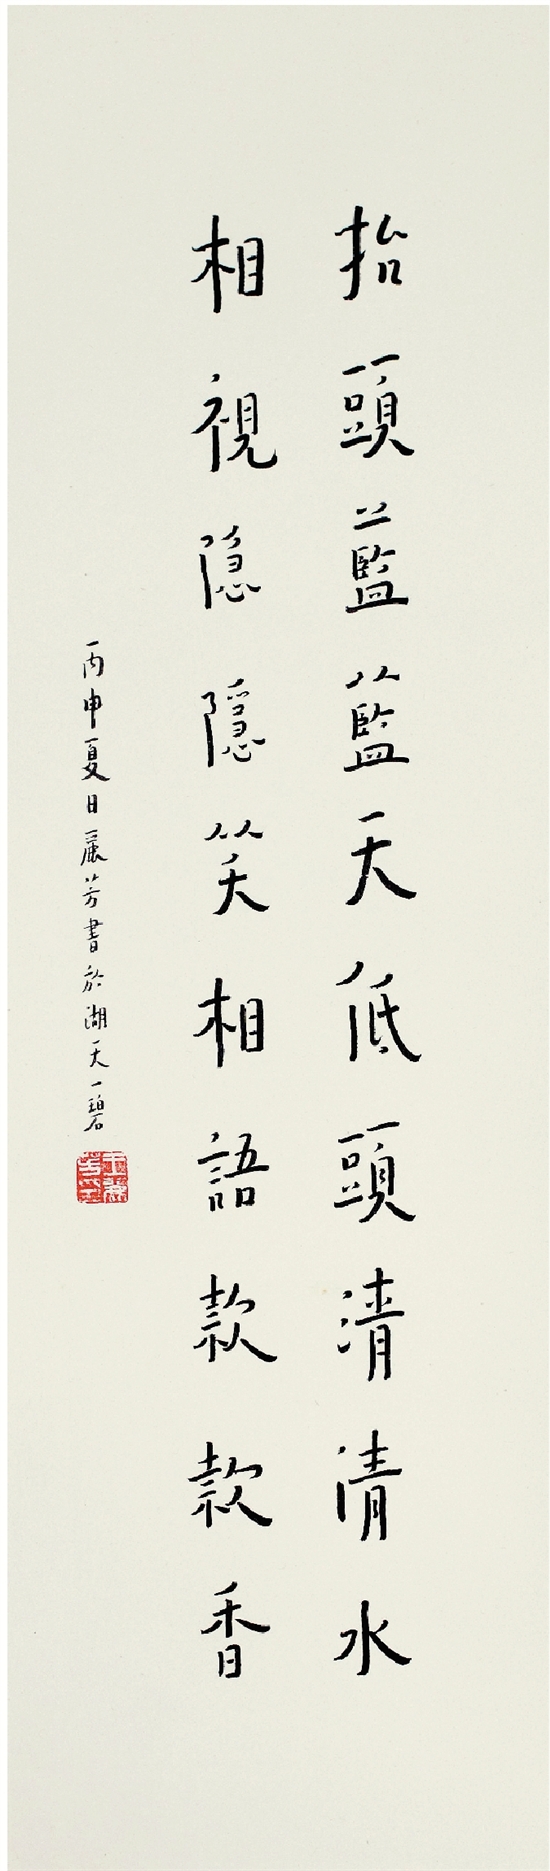 抬頭藍藍天低頭清清水
相視隱隱笑相語款款香
丙申夏日麗芳書於湖天一碧